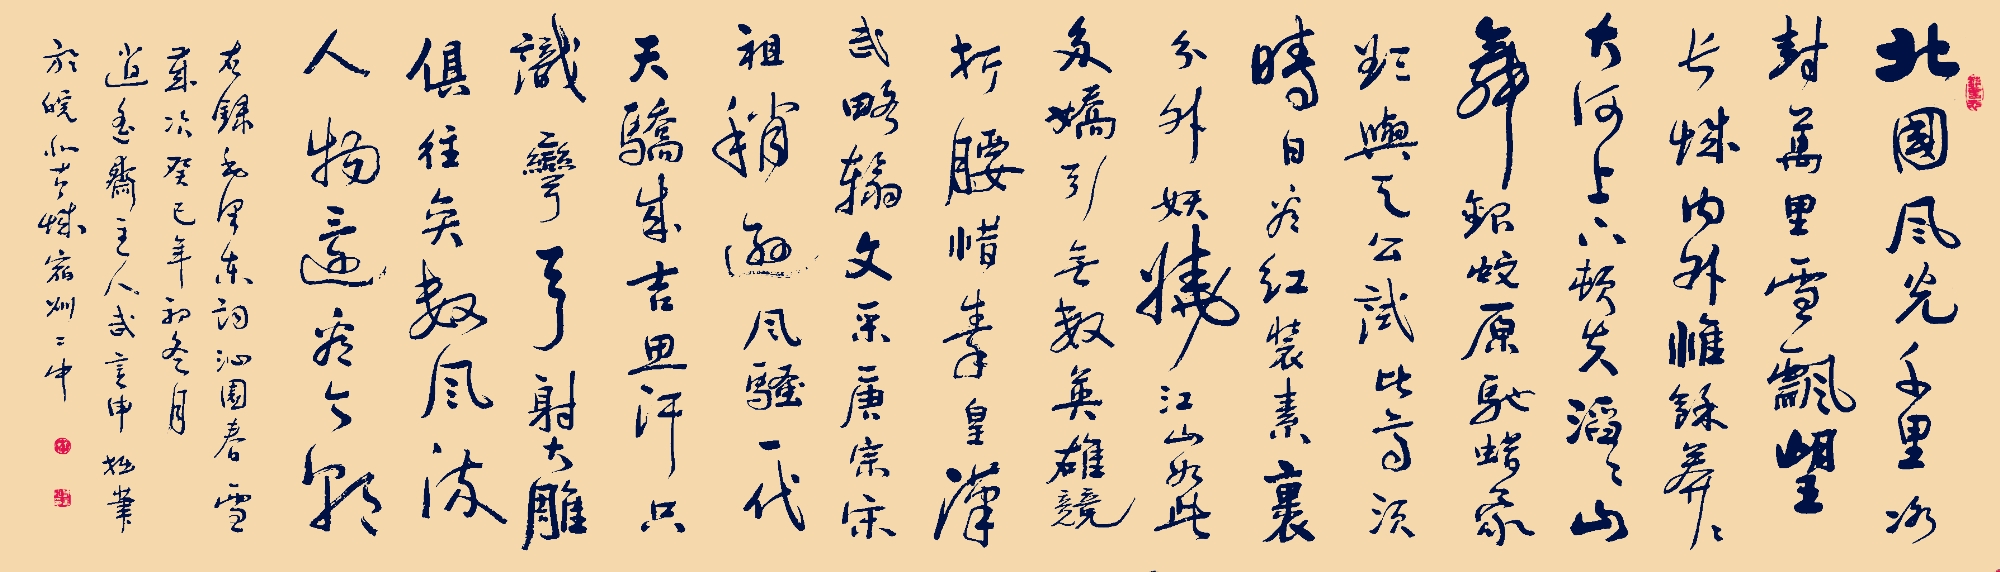 北國風光千里冰
封萬里雪飄望
长城內外惟餘莽〻
大河上下頓失滔〻山
舞銀蛇原馳蜡象
欲與天公試比高須
晴日看红裝素裹
分外妖嬈江山如此
多嬌引無數英雄競
折腰惜秦皇漢
武略輸文采唐宗宋
祖稍遜風騷一代
天驕成吉思汗只
識彎弓射大雕
俱往矣數風流
人物還看今朝
右錄毛澤東詞沁園春雪
歲次癸巳年初冬月
逍遙齋主人武言申拙筆
於皖北古城宿州二中